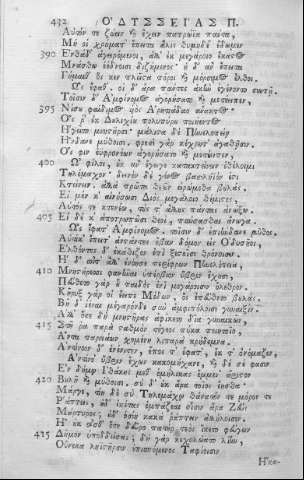 432 Ὀ Δ Υ Σ Σ Ε Ι Α Σ Π.
Αὐτόν τε ζώειν καὶ ἔχειν πατρώϊα πάντα,
Μή οἱ χρήματ᾽ ἔπειτα ἅλις θυμηδέ᾽ ἔδωμεν
390 Ἐνθάδ᾽ ἀγειρόμενοι, ἀλλ᾽ ἐκ μεγάροιο ἕκαστος
Μνάσθω ἐέδνοισιν διζήμενος· ἡ δέ κ᾽ ἔπειτα
Γήμαιθ᾽ ὅς κεν πλεῖστα πόροι καὶ μόρσιμος ἔλθοι.
Ὣς ἔφαθ᾽· οἱ δ᾽ ἄρα πάντες ἀκὴν ἐγένοντο σιωπῇ.
Τοῖσιν δ᾽ Ἀμφίνομος ἀγορήσατο καὶ μετέειπεν,
395 Νίσου φαίδιμος υἱὸς Ἀρητιάδαο ἄνακτος·
Ὅς ῥ᾽ ἐκ Δουλιχίου πολυπύρου ποιήεντος
Ἡγεῖτο μνηστῆρσι· μάλιστα δὲ Πηνελοπείῃ
Ἥνδανε μύθοισι, φρεσὶ γὰρ κέχρητ᾽ ἀγαθῇσιν.
Ὅς σφιν ἐϋφρονέων ἀγορήσατο καὶ μετέειπεν,
400 Ὦ φίλοι, οὐκ ἂν ἔγωγε κατακτείνειν ἐθέλοιμι
Τηλέμαχον· δεινὸν δὲ γένος βασιλήϊόν ἐστι
Κτείνειν, ἀλλὰ πρῶτα θεῶν εἰρώμεθα βουλάς.
Εἰ μέν κ᾽ αἰνήσωσι Διὸς μεγάλοιο θέμιστες,
Αὐτός τε κτενέω, τούς τ᾽ ἄλλους πάντας ἀνώξω·
405 Εἰ δέ κ᾽ ἀποτρωπῶσι θεοὶ, παύσασθαι ἄνωγα.
Ὣς ἔφατ᾽ Ἀμφίνομος· τοῖσιν δ᾽ ἐπιήνδανε μῦθος.
Αὐτίκ᾽ ἔπειτ᾽ ἀνστάντες ἔβαν δόμον εἰς Ὀδυσῆος,
Ἐλθόντες δ᾽ ἐκάθιζον ἐπὶ ξεστοῖσι θρόνοισιν.
Ἡ δ᾽ αὖτ᾽ ἄλλ᾽ ἐνόησε περίφρων Πηνελόπεια
410 Μνηστήρεσσι φανῆναι ὑπέρβιον ὕβριν ἔχουσι,
Πεύθετο γὰρ οὗ παιδὸς ἐνὶ μεγάροισιν ὄλεθρον·
Κήρυξ γάρ οἱ ἔειπε Μέδων, ὃς ἐπεύθετο βουλάς.
Βῆ δ᾽ ἰέναι μεγαρόνδε σὺν ἀμφιπόλοισι γυναιξίν.
Ἀλλ᾽ ὅτε δὴ μνηστῆρας ἀφίκετο δῖα γυναικῶν,
415 Στῆ ῥα παρὰ σταθμὸν τέγεος πύκα ποιητοῖο,
Ἄντα παρειάων σχομένη λιπαρὰ κρήδεμνα·
Ἀντίνοον δ᾽ ἐνένιπεν, ἔπος τ᾽ ἔφατ᾽, ἔκ τ᾽ ὀνόμαζεν,
Ἀντίνο᾽ ὕβριν ἔχων κακομήχανε, καὶ δέ σέ φασιν
Ἐν δήμῳ Ἰθάκης μεθ᾽ ὁμήλικας ἔμμεν ἄριστον
420 Βουλῇ καὶ μύθοισι, σὺ δ᾽ οὐκ ἄρα τοῖος ἔησθα·
Μάργε, τίη δὲ σὺ Τηλεμάχῳ θάνατόν τε μόρον τε
Ῥάπτεις, οὐδ᾽ ἱκέτας ἐμπάζεαι οἷσιν ἄρα Ζεὺς
Μάρτυρος; οὐδ᾽ ὁσίη κακὰ ῥάπτειν ἀλλήλοισιν.
Ἦ οὐκ οἶσθ᾽ ὅτε δεῦρο πατὴρ τεὸς ἵκετο φεύγων
425 Δῆμον ὑποδδείσας; δὴ γὰρ κεχολώατο λίην,
Οὕνεκα ληϊστῆρσιν ἐπισπόμενος Ταφίοισιν
Ἤκα-